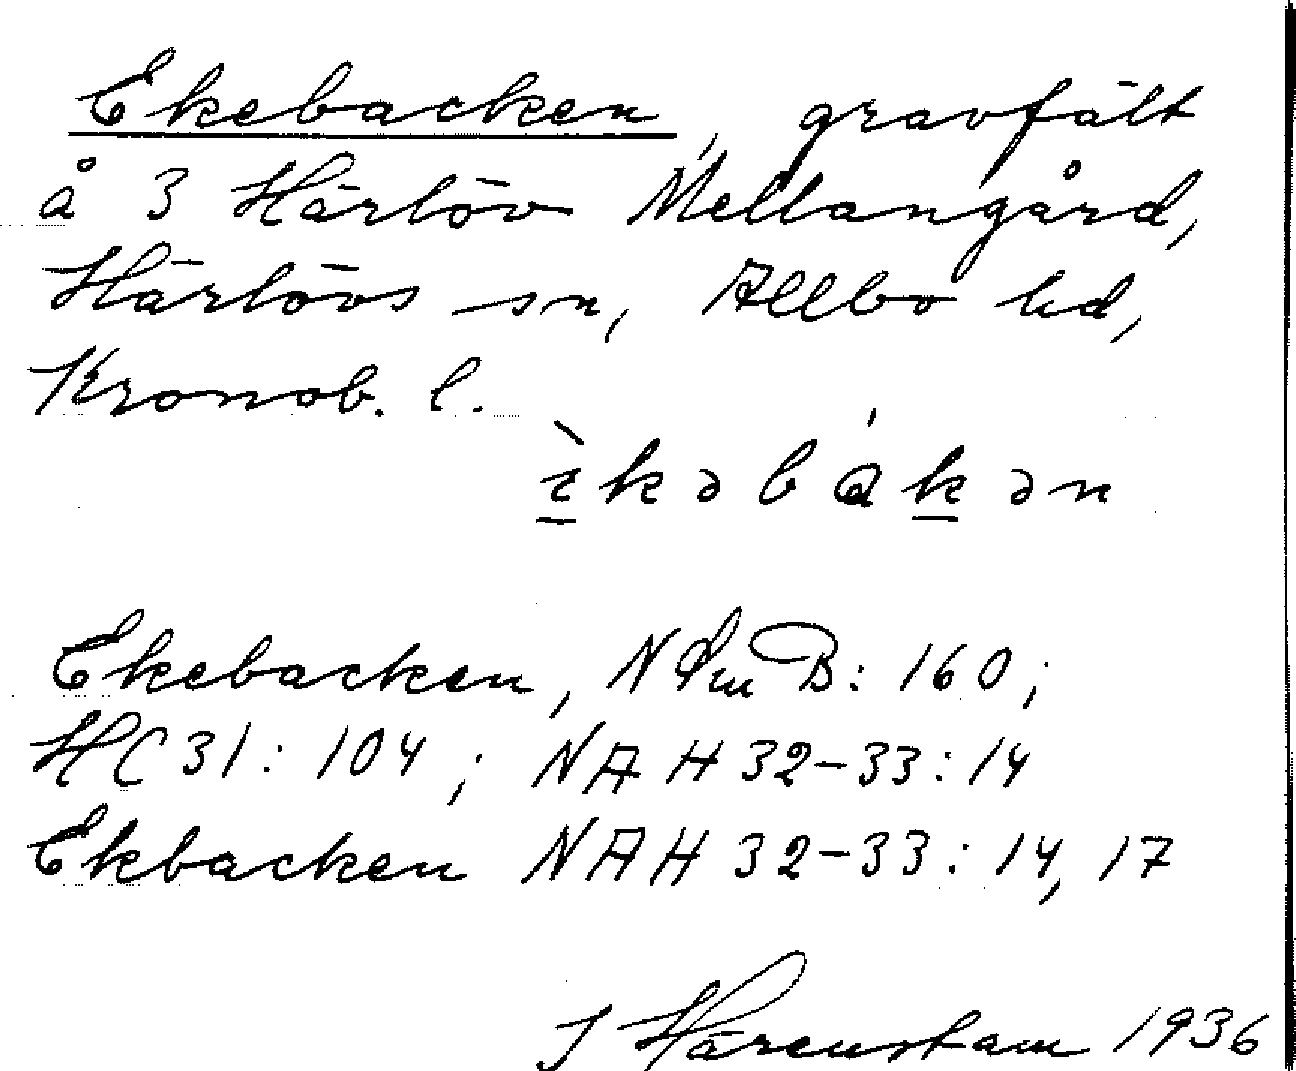 Ekebacken, gravfält
å 3 Härlöv Mellangård,
Härlövs sn, Allbo hd,
Kronob. l.
ekəbakən
Ekebacken, N Sm B: 160;
HC 31: 104; NAH 32-33: 14
Ekbacken NAH 32-33: 14, 17
J Härenstam 1936